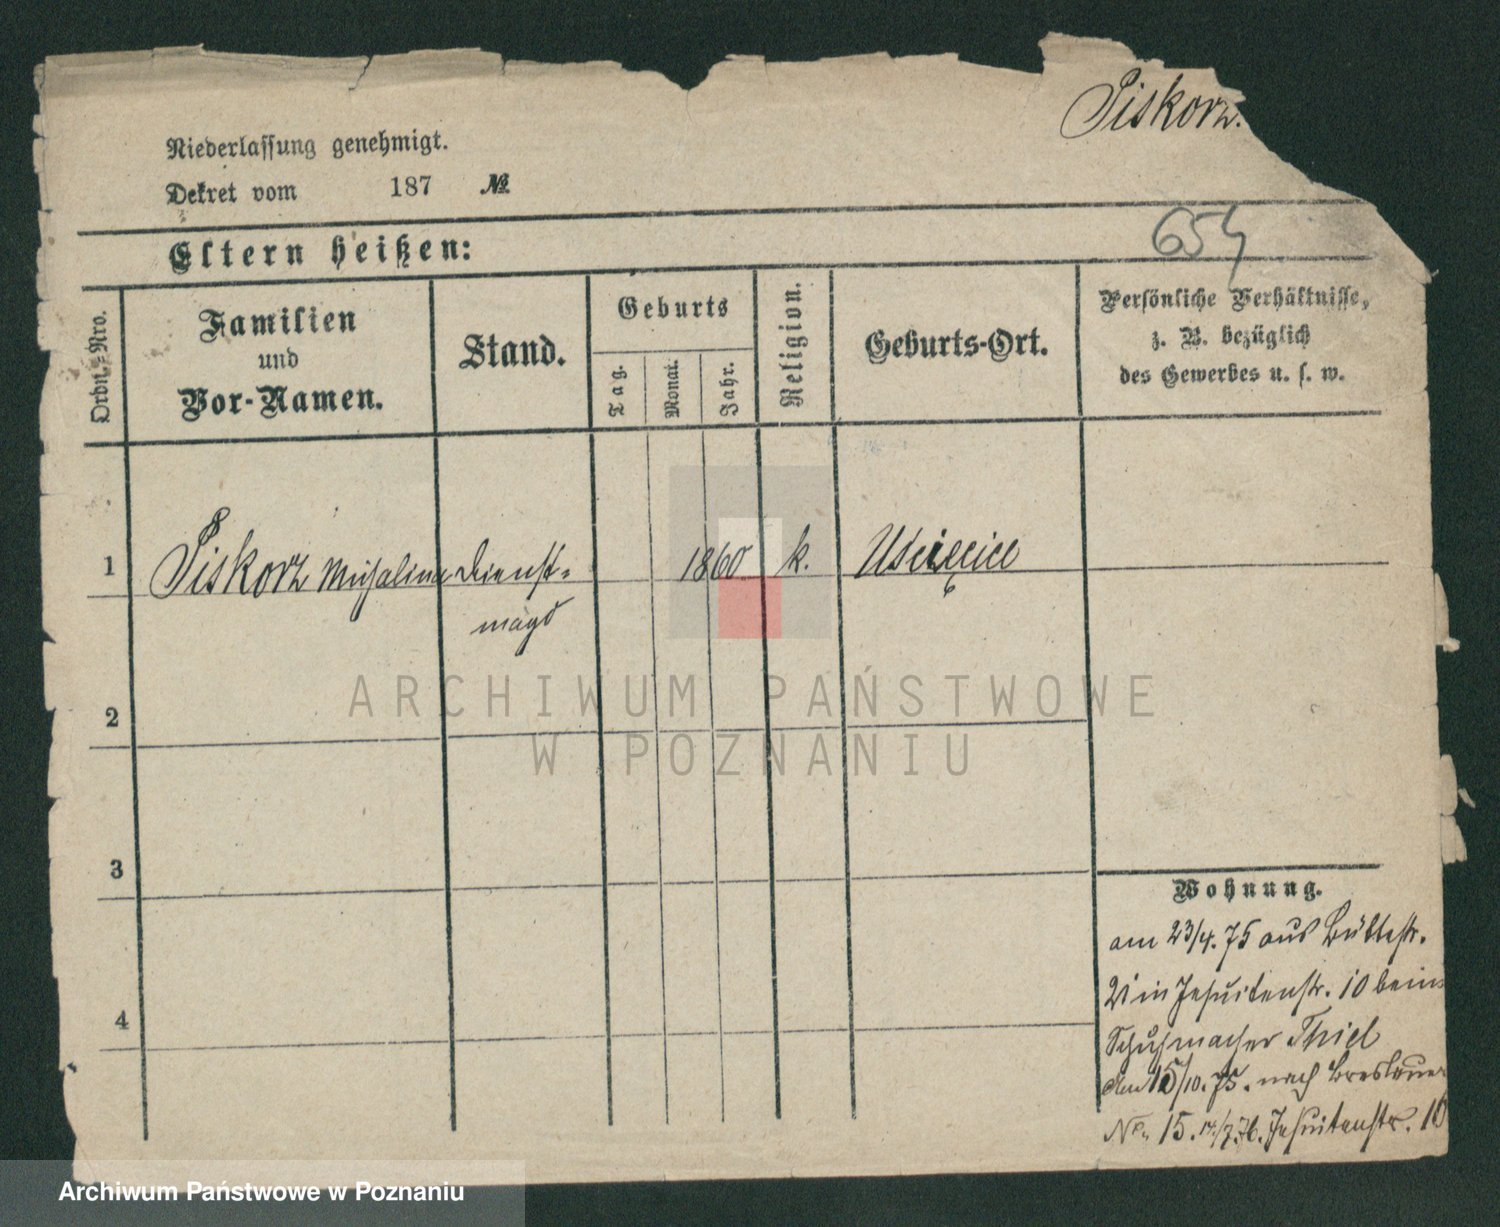 Piskorz.
Niederlassung genehmigt.
Dekret vom 187 №
654
Eltern heißen:
Ordn.-Nro.
Familien
und
Vor-Namen.
Stand.
Geburts
Tag.
Monat.
Jahr.
Religion.
Geburts-Ort.
Persönliche Verhältnisse,
z. B. bezüglich
des Gewerbes u. s. w.
1 Piskorz Michalina Dienst-
magd
1860 k. Uscięcice
2
3
4
Wohnung.
am 23/4. 75 aus Büttelstr.
21 in Jesuitenstr. 10 beim
Schuhmacher Thiel
den 15/10. 75. nach Breslauer
No. 15. 14/7. 76. Jesuitenstr. 10
ARCHIWUM PAŃSTWOWE
W POZNANIU
Archiwum Państwowe w Poznaniu